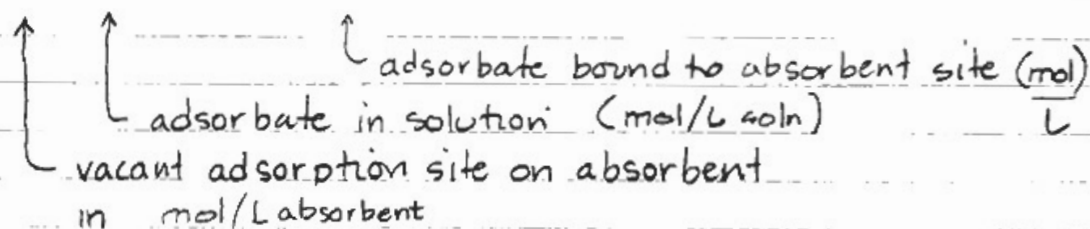 adsorbate bound to absorbent site (mol/L)
adsorbate in solution (mol/L soln)
vacant adsorption site on absorbent
in mol/L absorbent